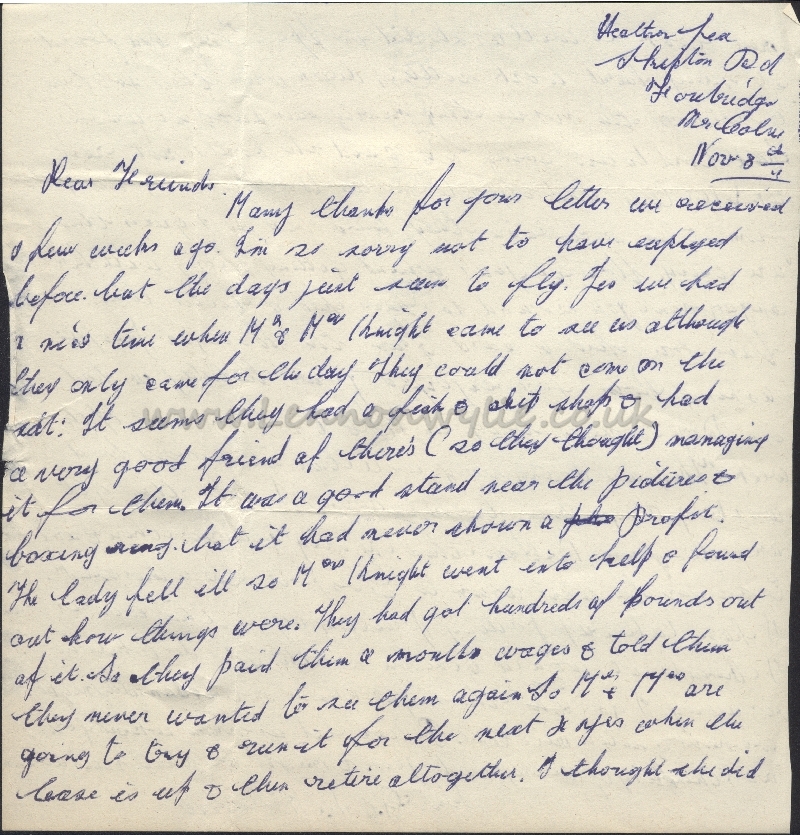 Heather Lea
Skipton Rd
Foulridge
Nr Colne
Nov 8th
Dear Friends.
Many thanks for your letter we received
a few weeks ago. I'm so sorry not to have replyed
before. but the days just seem to fly. Yes we had
a nice time when Mr & Mrs Knight came to see us although
they only came for the day They could not come on the
It seems they had a fish & chip shop & had
a very good friend of there's (so they thought) managing
it for them. It was a good stand near the pictures &
boxing ring. but it had never shown a profit.
The lady fell ill so Mrs Knight went into help & found
out how things were. They had got hundreds of pounds out
of it. So they paid them a months wages & told them
they never wanted to see them again So Mr & Mrs are
going to try & run it for the next yrs when the
lease is up & then retire altogether. I thought she did
www.lennoxwylie.co.uk